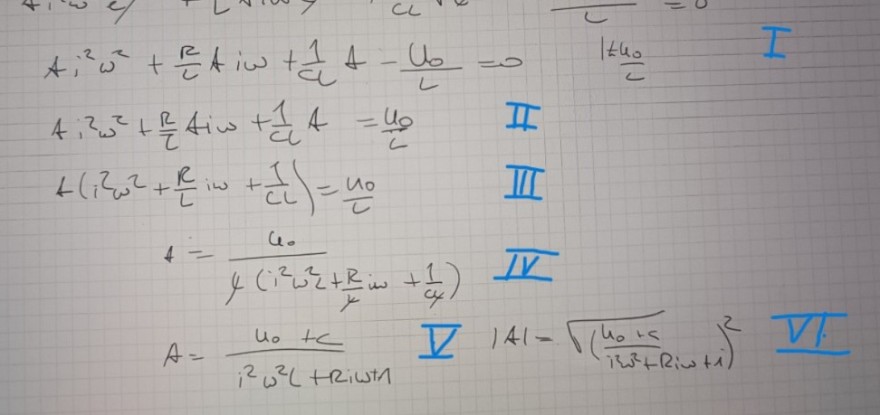 A i²ω² + R/L A iω + 1/CL A - U₀/L = 0 |± u₀/L I
A i²ω² + R/L A iω + 1/CL A = U₀/L II
A (i²ω² + R/L iω + 1/CL) = u₀/L III
A = u₀ / L (i²ω²L + R/L iω + 1/CL) IV
A = u₀ + c / i²ω²L + Riω+1 V |A| = √(u₀ + c / i²ω² + Riω + 1)² VI